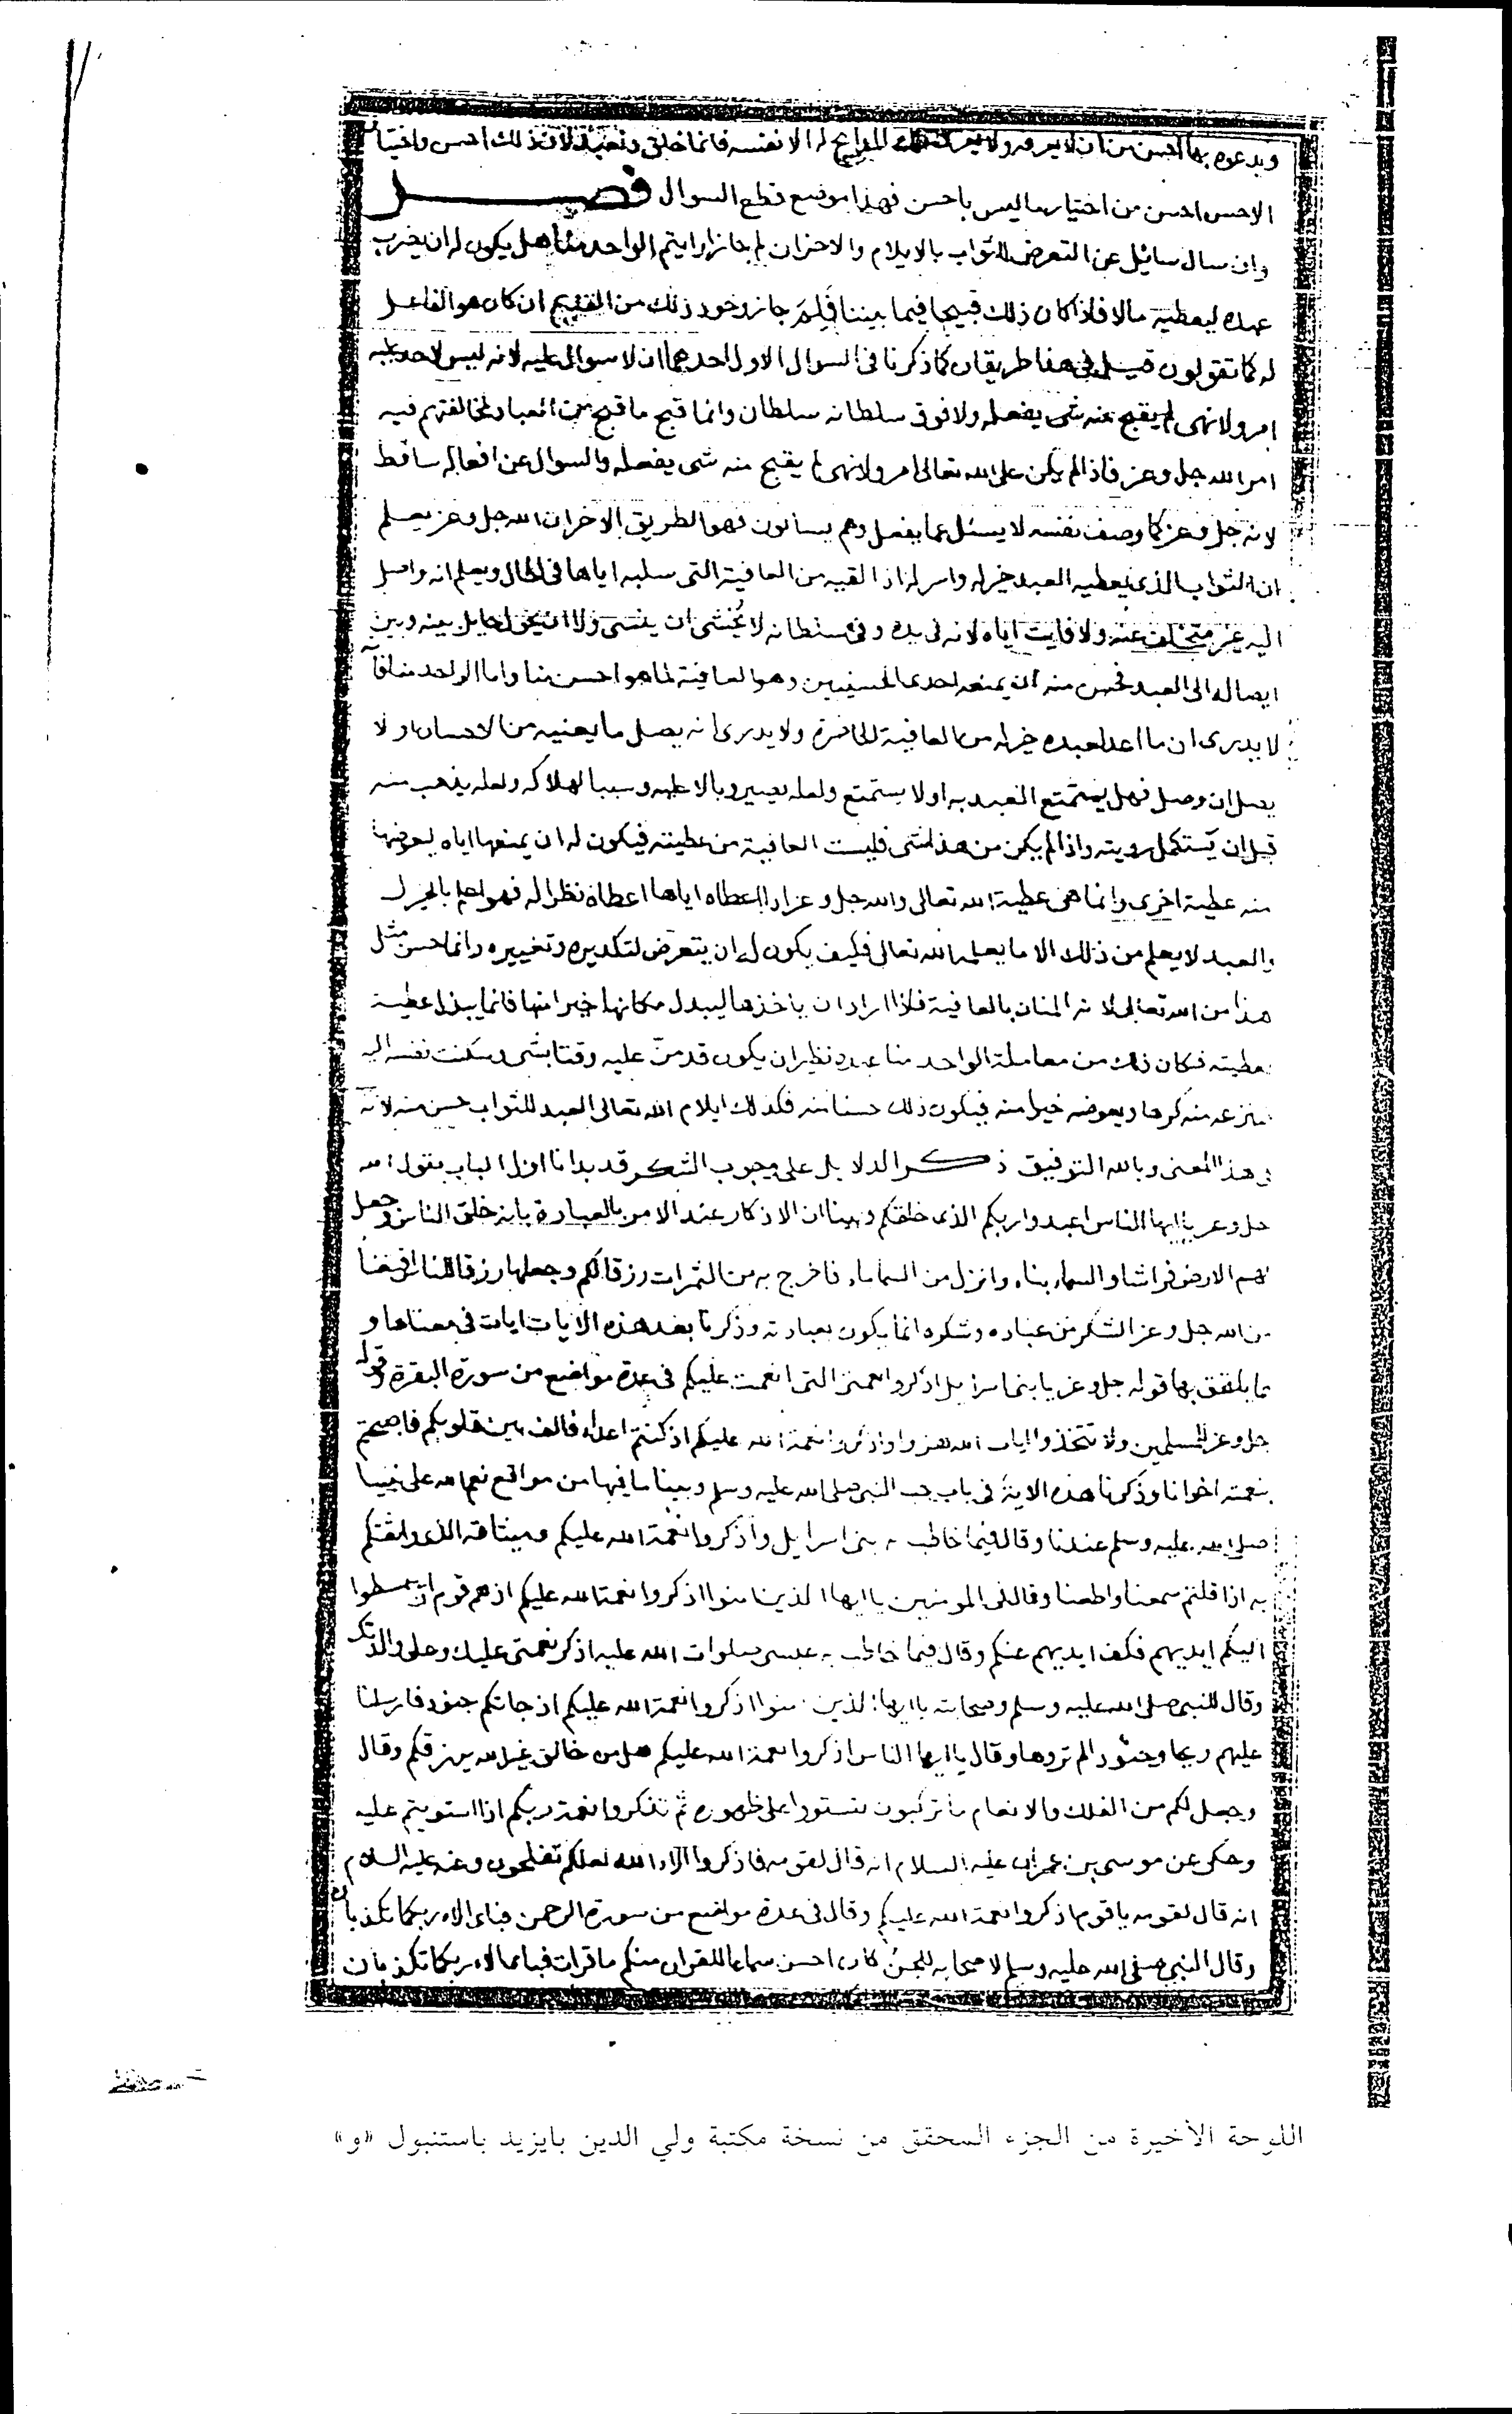 ويدعوه بها احسن من ان لا يعرفه ولا يعرف له الا نفسه فانما خلق لان ذلك احسن واختيار
الاحسن احسن من اختيار ما ليس باحسن فهذا موضع قطع السوال فصل
وان سال سائل عن التعرض للثواب بالايلام والاحزان لم جاز ارايتم الواحد منا هل يكون له ان يضرب
عبده ليعطيه مالا فاذا كان ذلك قبيحا فيما بيننا فلم جاز وجود ذلك من القديم ان كان هو الفاعل
له كما تقولون قيل في هذا طريقان كما ذكرنا في السوال الاول احدهما ان لا سوال عليه لانه ليس لاحد عليه
امر ولا نهي لم يقبح عنه شي يفعله ولا فوق سلطانه سلطان وانما قبح ما قبح من العباد لمخالفتهم فيه
امر الله جل وعز فاذا لم يكن على الله تعالى امر ولا نهي لم يقبح منه شي يفعله والسوال عن افعاله ساقط
لانه جل وعز كما وصف نفسه لا يسئل عما يفعل وهم يسالون فهو الطريق الاخر ان الله جل وعز يعلم
ان الثواب الذي يعطيه العبد خير له واسر له اذا القيه من العافية التي سلبه اياها في الحال ويعلم انه واصل
اليه غير متخلف عنه ولا فايت اياه لانه في يده وفي سلطانه لا يخشى ان ينسى ولا ان يحول حايل بينه وبين
ايصاله الى العبد فحسن منه ان يمنعه احدى الحسنيين وهو العافية لما هو احسن منا واما الواحد منا
لا يدري ان ما اعد لعبده خير له من العافية الحاضرة ولا يدري انه يصل ما يعنيه من الاحسان اولا
يصل ان وصل فهل يستمتع العبد به اولا يستمتع ولعله يصير وبالا عليه وسببا لهلاكه ولعله يذهب منه
قبل ان يستكمل رويته واذا لم يكن من هذا شي فليست العافية من عطيته فيكون له ان يمنعها اياه ليعوضها
منه عطية اخرى وانما هي عطية الله تعالى والله جل وعز اذا اعطاه اياها اعطاه نظرا له فهو اعلم بالخير له
والعبد لا يعلم من ذلك الا ما يعلمه الله تعالى فكيف يكون له ان يتعرض لتكديره وتغييره وانما حسن مثل
هذا من الله تعالى لانه المنان بالعافية فاذا اراد ان ياخذها ليبدل مكانها خيرا منها فانما يبدل عطية
بعطيته فكان ذلك من معاملة الواحد منا عبده نظير ان يكون قد من عليه وقتا بشي وسكنت نفسه اليه
ينزعه منه كرها ويعوضه خيرا منه فيكون ذلك حسنا منه فكذلك ايلام الله تعالى العبد للثواب حسن منه لانه
في هذا المعنى وبالله التوفيق ذكر الدلايل على وجوب الشكر قد بدانا اول الباب بقول الله
جل وعز يا ايها الناس اعبدوا ربكم الذي خلقكم وبينا ان الاذكار عند الامر بالعبادة بانه خلق الناس وجعل
لهم الارض فراشا والسماء بناء وانزل من السماء ماء فاخرج به من الثمرات رزقا لكم وجعلها رزقا للناس
من الله جل وعز الشكر من عباده وشكره انما يكون بعبادته وذكرنا بعد هذه الايات ايات في معناها و
مما يلفق بها قوله جل وعز يا بني اسرايل اذكروا نعمتي التي انعمت عليكم في عدة مواضع من سورة البقرة وقوله
جل وعز للمسلمين ولا تتخذوا ايات الله هزوا واذكروا نعمة الله عليكم اذ كنتم اعداء فالف بين قلوبكم فاصبحتم
بنعمته اخوانا وذكرنا هذه الاية في باب حب النبي صلى الله عليه وسلم وبينا ما فيها من مواقع نعم الله على نبينا
صلى الله عليه وسلم عندنا وقال فيما خاطب به بني اسرايل واذكروا نعمة الله عليكم وميثاقه الذي واثقكم
به اذا قلتم سمعنا واطعنا وقال في المومنين يا ايها الذين امنوا اذكروا نعمة الله عليكم اذ هم قوم ان يبسطوا
اليكم ايديهم فكف ايديهم عنكم وقال فيما خاطب به عيسى صلوات الله عليه اذكر نعمتي عليك وعلى والدتك
وقال للنبي صلى الله عليه وسلم وصحابته يا ايها الذين امنوا اذكروا نعمة الله عليكم اذ جاتكم جنود فارسلنا
عليهم ريحا وجنودا لم تروها وقال يا ايها الناس اذكروا نعمة الله عليكم هل من خالق غير الله يرزقكم وقال
وجعل لكم من الفلك والانعام ما تركبون لتستووا على ظهوره ثم تذكروا نعمة ربكم اذا استويتم عليه
وحكى عن موسى بن عمران عليه السلام انه قال لقومه فاذكروا الاء الله لعلكم تفلحون وعنه عليه السلام
انه قال لقومه يا قوم اذكروا نعمة الله عليكم وقال في عدة مواضع من سورة الرحمن فباي الاء ربكما تكذبان
وقال النبي صلى الله عليه وسلم لاصحابه للجن كان احسن سماعا للقران منكم ما قرات فباي الاء ربكما تكذبان
اللوحة الأخيرة من الجزء المحقق من نسخة مكتبة ولي الدين بايزيد باستنبول «و»